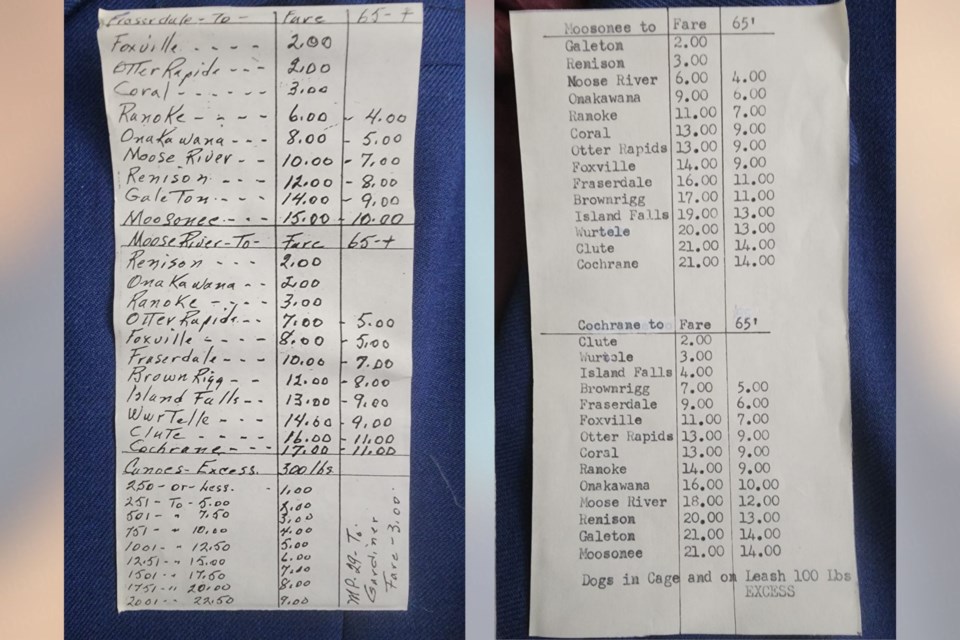 Fraserdale - To - Fare 65-+
Foxville - - - - 2.00
Otter Rapids - - - 2.00
Coral - - - - - - 3.00
Ranoke - - - - 6.00 - 4.00
Onakawana - - - 8.00 - 5.00
Moose River - - 10.00 - 7.00
Renison - - - 12.00 - 8.00
GaleTon - - - 14.00 - 9.00
Moosonee - - - 15.00 - 10.00
Moose River - To - Fare 65-+
Renison - - - 2.00
Onakawana - - 2.00
Ranoke - - - - 3.00
Otter Rapids - - - 7.00 - 5.00
Foxville - - - - 8.00 - 5.00
Fraserdale - - - 10.00 - 7.00
BrownRigg - - 12.00 - 8.00
Island Falls - - 13.00 - 9.00
WurTelle - - - 14.00 - 9.00
Clute - - - - - 16.00 - 11.00
Cochrane - - - - 17.00 - 11.00
Canoes - Excess. 300 lbs
250 - or - Less. - 1.00
251 - To - 5.00
501 - " 7.50 3.00
751 - " 10.00 4.00
1001 - " 12.50 5.00
12.51 - " 15.00 6.00
1501 - " 17.50 7.00
1751 - " 20.00 8.00
2001 - " 22.50 9.00
MP. 29 - To.
Gardiner
Fare - 3.00.
Moosonee to Fare 65'
Galeton 2.00
Renison 3.00
Moose River 6.00 4.00
Onakawana 9.00 6.00
Ranoke 11.00 7.00
Coral 13.00 9.00
Otter Rapids 13.00 9.00
Foxville 14.00 9.00
Fraserdale 16.00 11.00
Brownrigg 17.00 11.00
Island Falls 19.00 13.00
Wurtele 20.00 13.00
Clute 21.00 14.00
Cochrane 21.00 14.00
Cochrane to Fare 65'
Clute 2.00
Wurtele 3.00
Island Falls 4.00
Brownrigg 7.00 5.00
Fraserdale 9.00 6.00
Foxville 11.00 7.00
Otter Rapids 13.00 9.00
Coral 13.00 9.00
Ranoke 14.00 9.00
Onakawana 16.00 10.00
Moose River 18.00 12.00
Renison 20.00 13.00
Galeton 21.00 14.00
Moosonee 21.00 14.00
Dogs in Cage and on Leash 100 Lbs
EXCESS